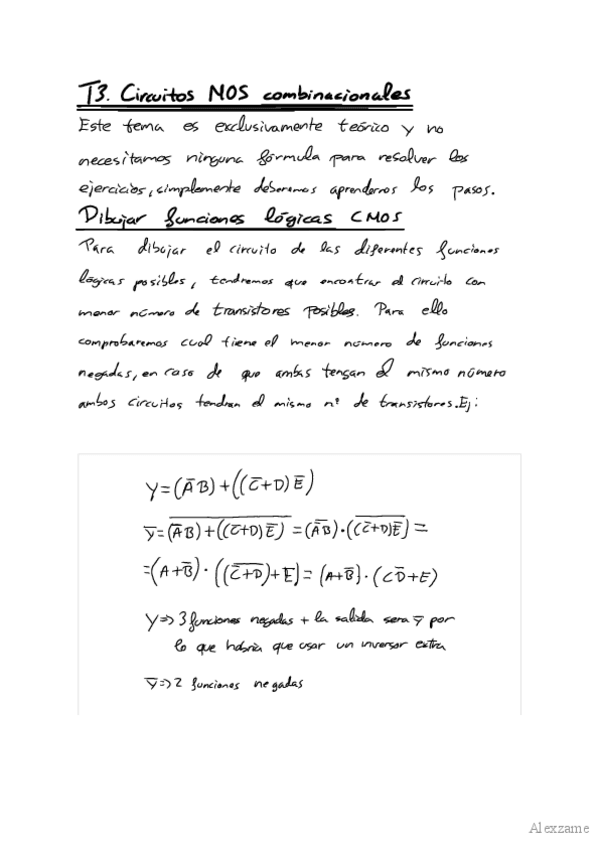 T3. Circuitos MOS combinacionales
Este tema es exclusivamente teórico y no
necesitamos ninguna fórmula para resolver los
ejercicios, simplemente deberemos aprendernos los pasos.
Dibujar funciones lógicas CMOS
Para dibujar el circuito de las diferentes funciones
lógicas posibles, tendremos que encontrar el circuito con
menor número de transistores posibles. Para ello
comprobaremos cual tiene el menor numero de funciones
negadas, en caso de que ambas tengan el mismo número
ambos circuitos tendran el mismo nº de transistores. Ej:
Y=(A̅B)+((C̅+D)E̅)
Y̅=\overline{(A̅B)+((C̅+D)E̅)}=(\overline{A̅B})·(\overline{(C̅+D)E̅})=
=(A+B̅)·((\overline{C̅+D})+E)=(A+B̅)·(CD̅+E)
Y=>3 funciones negadas + la salida sera Y̅ por
lo que habría que usar un inversor extra
Y̅=>2 funciones negadas
Alexzame